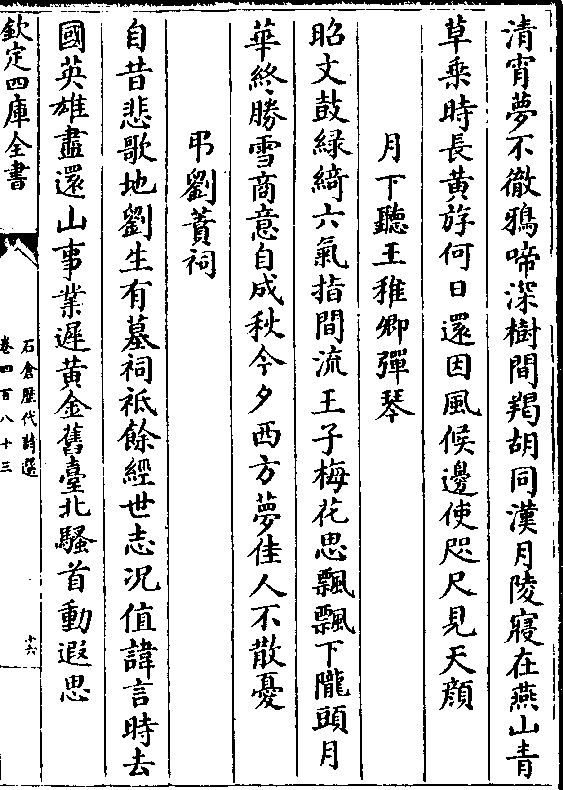 清宵夢不徹鴉啼深樹間羯胡同漢月陵寢在燕山青
草乘時長黄旂何日還因風候邊使咫尺見天顔
月下聽王稚卿彈琴
昭文鼓緑綺六氣指間流王子梅花思飄飄下隴頭月
華終勝雪商意自成秋今夕西方夢佳人不散憂
弔劉蕡祠
自昔悲歌地劉生有墓祠祗餘經世志况值諱言時去
國英雄盡還山事業遲黄金舊臺北騷首動遐思
欽定四庫全書
石倉歷代詩選
卷四百八十三
十六